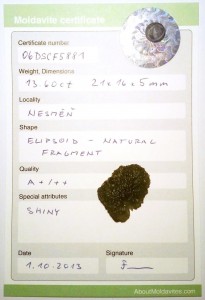 Moldavite certificate
Certificate number:
06DSCF5881
Weight, Dimensions
13.60ct 21x16x5mm
Locality
NESMĚŇ
Shape
ELIPSOID - NATURAL
FRAGMENT
Quality
A+/++
Special attributes
SHINY
Date
Signature
1.10.2013
AboutMoldavites.com